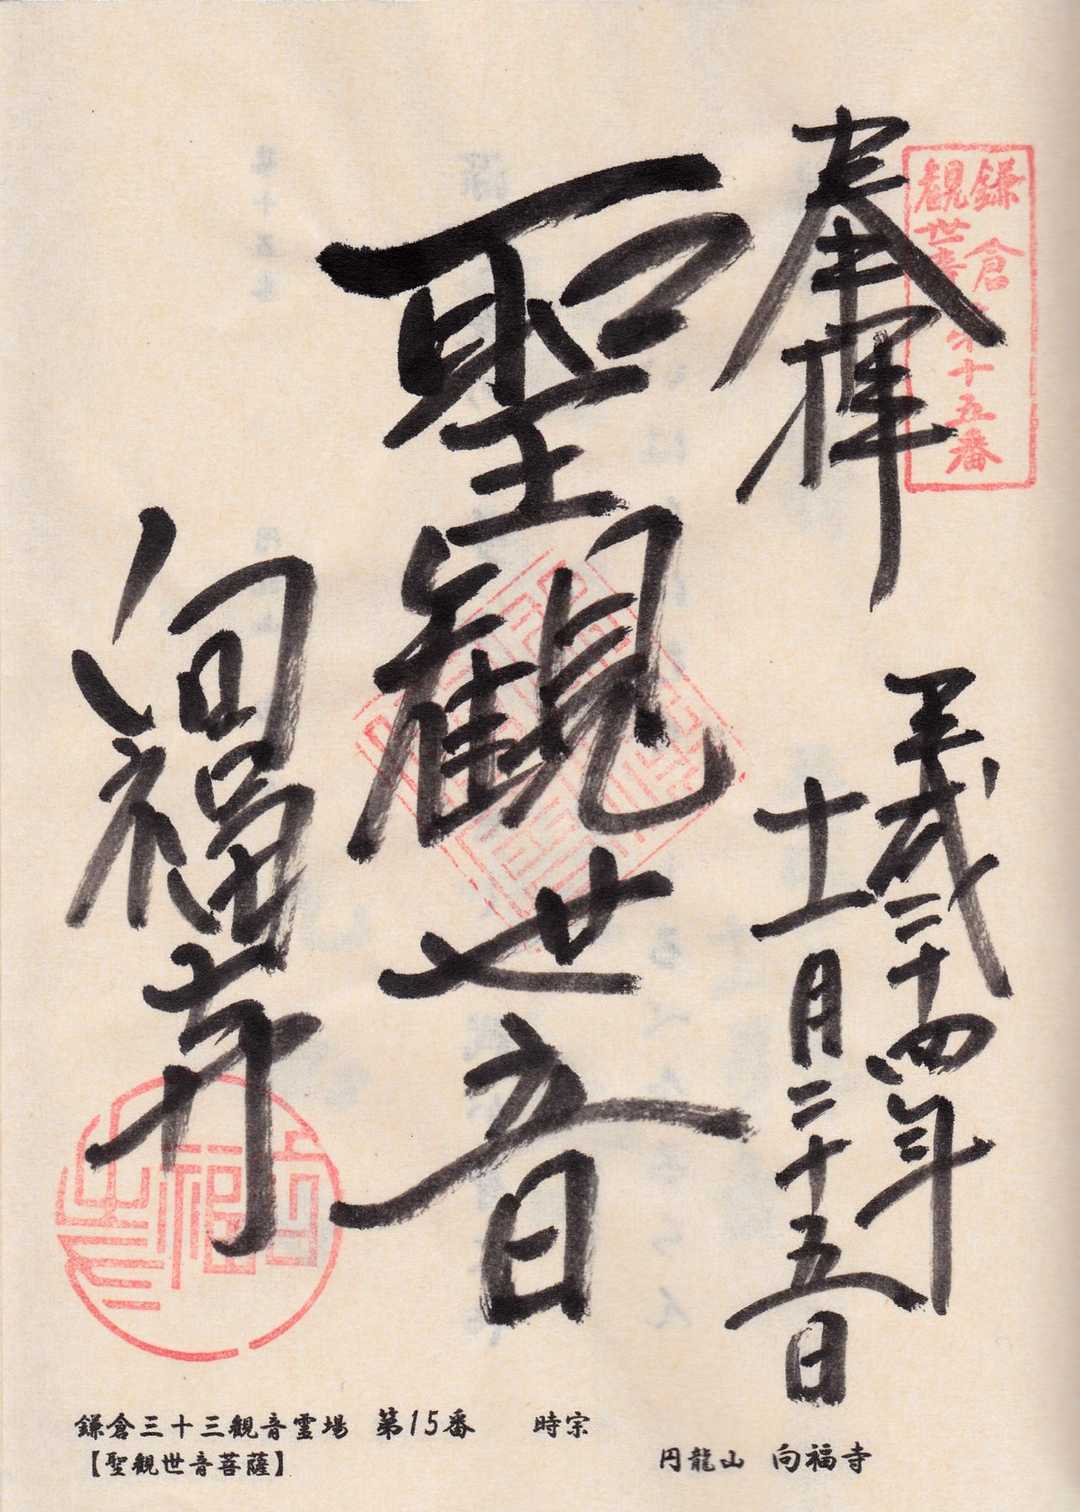 奉拝
鎌倉
観世音第十五番
平成二十四年
十一月二十五日
聖観世音
向福寺
鎌倉三十三観音霊場　第15番　　時宗
【聖観世音菩薩】
円龍山　向福寺